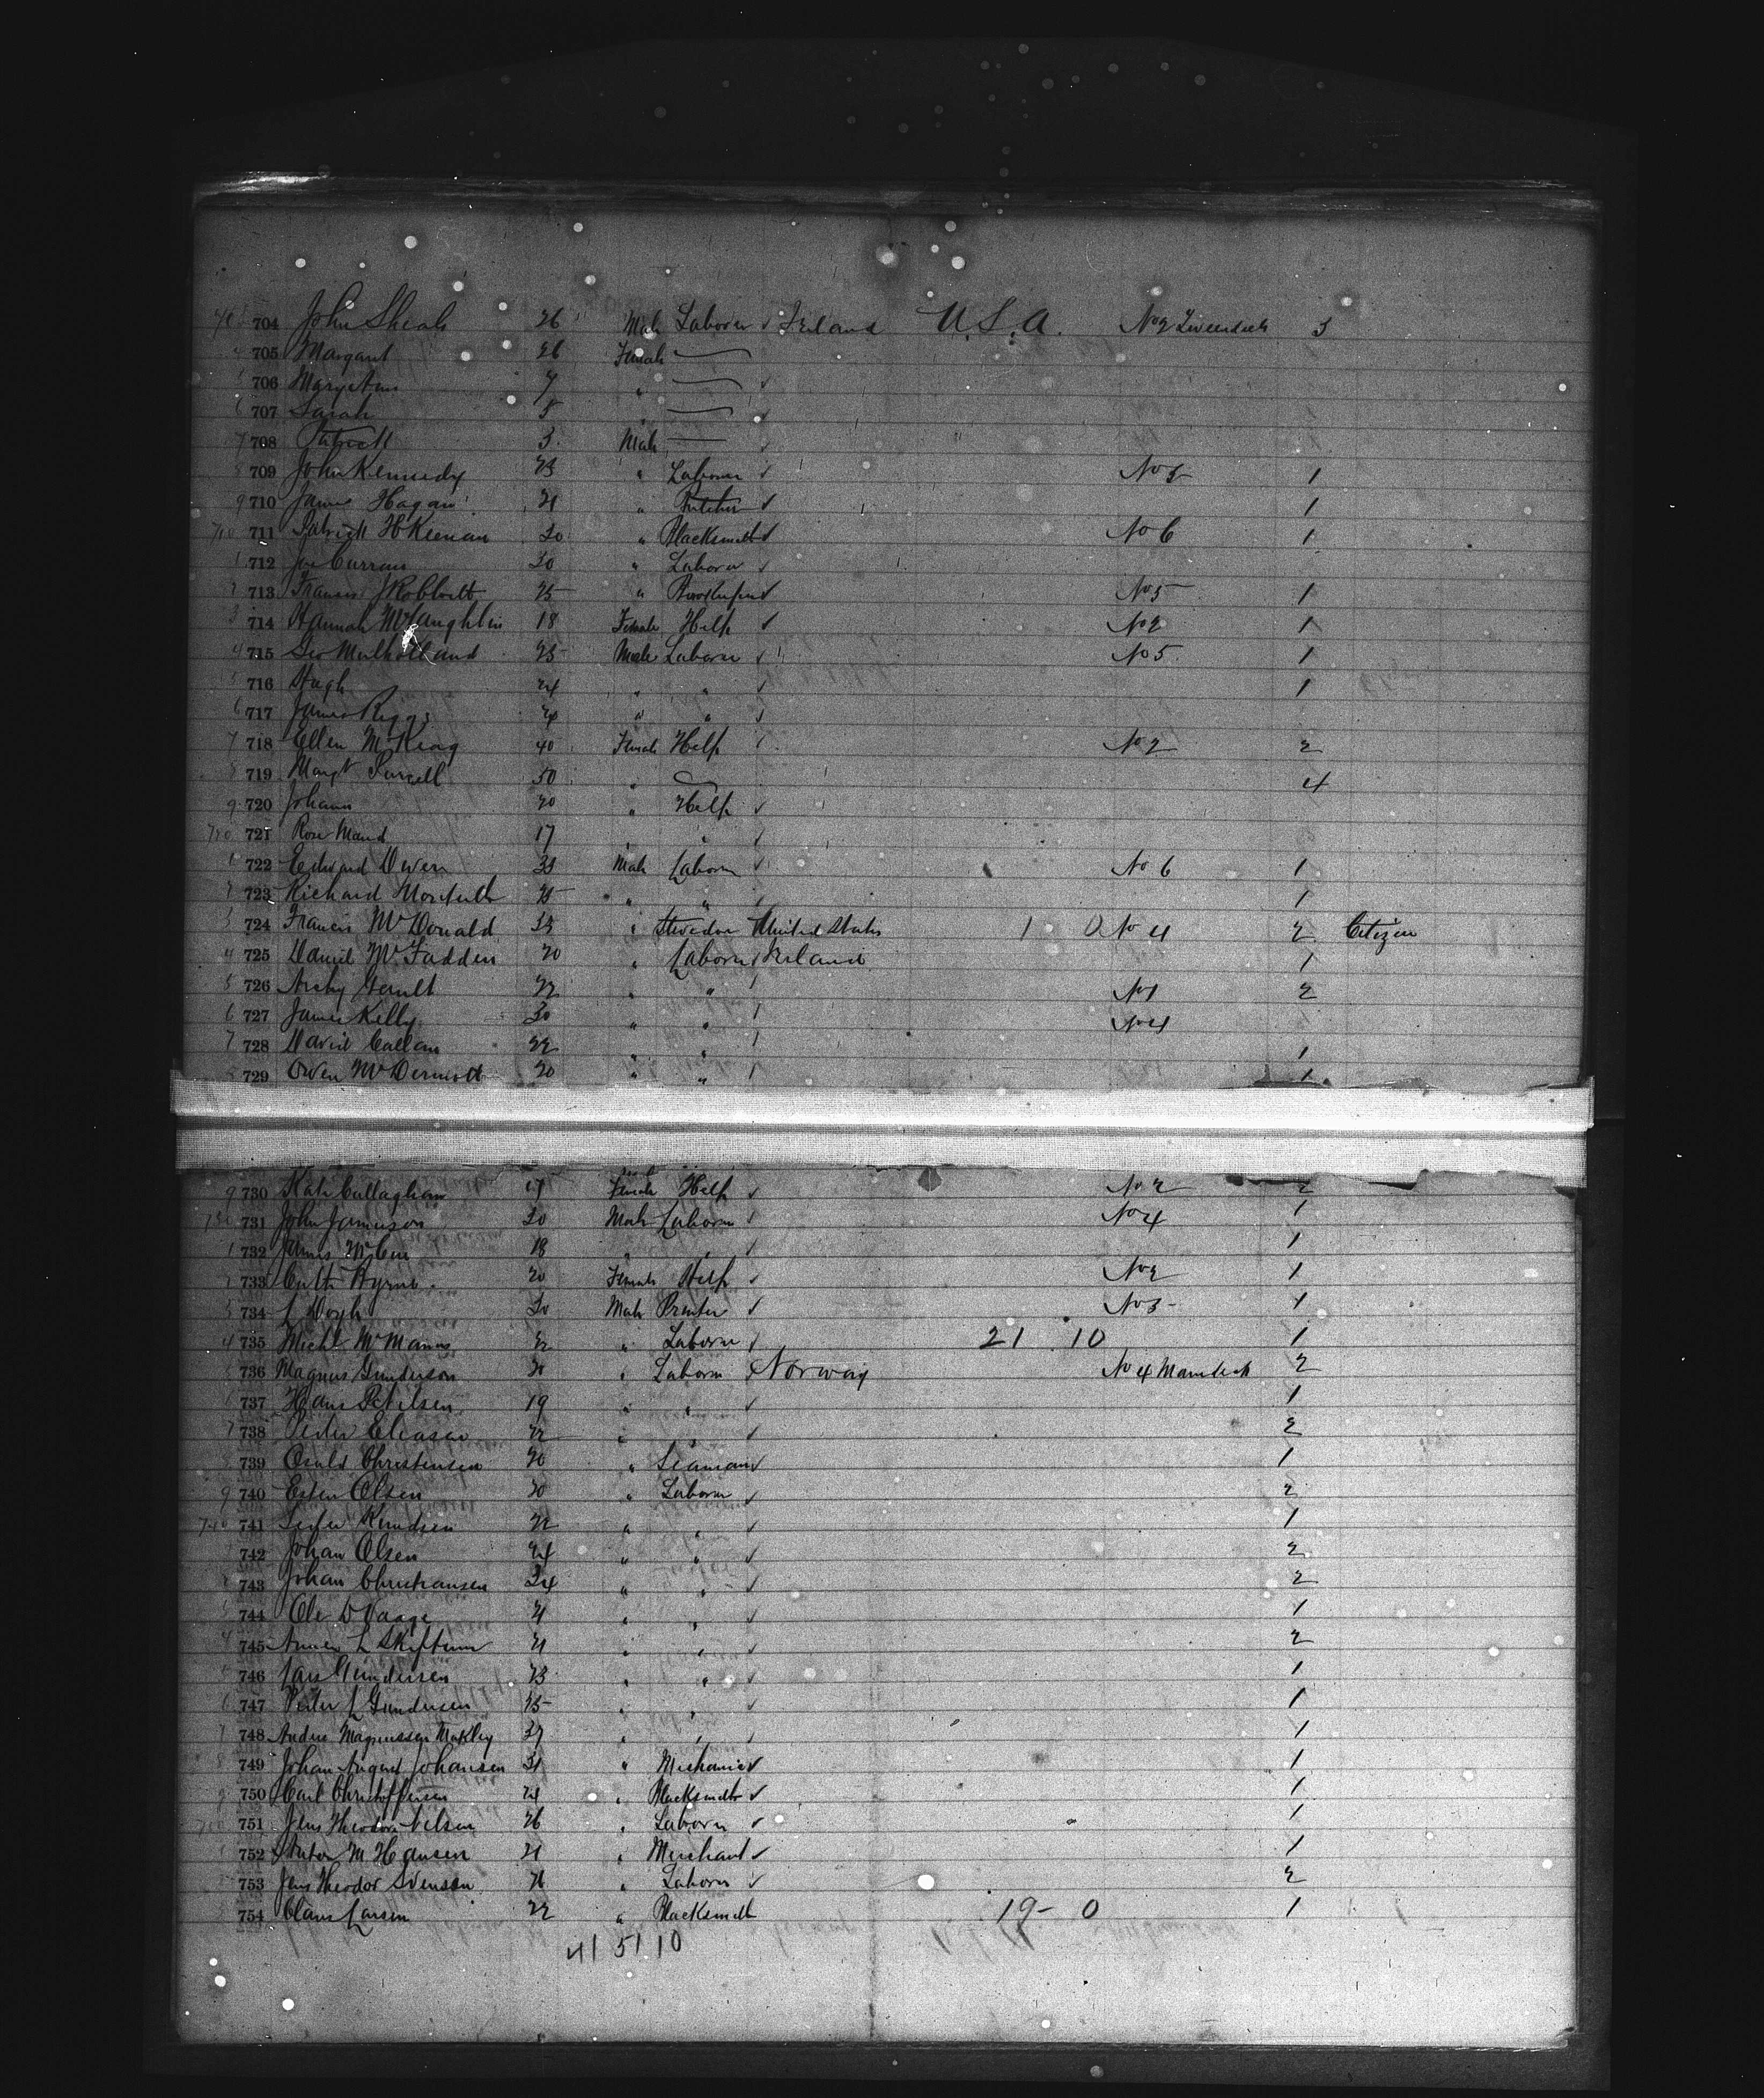 704 John 26 Male Laborer Ireland U.S.A. No 2 3
705 Margaret 26 Female
706 Mary Ann 7 "
707 Sarah 5 "
708 Patrick 3 Male
709 John Kennedy 23 " Laborer No 5 1
710 James Hagan 21 " Butcher 1
711 Patrick H Keenan 30 " Blacksmith No 6 1
712 Joe Curran 30 " Laborer
713 Francis 25 " No 5 1
714 Hannah McLaughlin 18 Female Help No 2 1
715 Geo Mulholland 25 Male Laborer No 5 1
716 Hugh 24 " " 1
717 James Riggs " "
718 Ellen McKeag 40 Female Help No 2 2
719 Margt Purcell 50 " 4
720 Johann 20 " Help
721 Rose Maud 17 " "
722 Edward Owen 33 Male Laborer No 6 1
723 Richard 25 " " 1
724 Francis McDonald " Stevedore United States 1 0 No 4 2 Citizen
725 Daniel McFadden 20 " Laborer Ireland 1
726 Archy 22 " " No 1 2
727 James Kelly 30 " " No 4
728 David Callan 22 " " 1
729 Owen McDermott 20 " " 1
730 Kate Callaghan 17 Female Help No 2 2
731 John Jamieson 30 Male Laborer No 4 1
732 James 18 " " 1
733 Cath Byrne 20 Female Help No 2 1
734 30 Male Printer No 3 1
735 Michl McManus 22 " Laborer 21 10 1
736 Magnus Gunderson 20 " Laborer Norway No 4 Main deck 2
737 Hans 19 " " 1
738 Peder 22 " " 2
739 Christensen 20 " Seaman 1
740 Olsen 20 " Laborer 2
741 Peder Knudsen 22 " " 1
742 Johan Olsen 24 " " 2
743 Johan Christiansen 24 " " 2
744 Ole D Vaage 21 " " 1
745 21 " " 2
746 Lars Gundersen 23 " " 1
747 Peder L Gundersen 25 " " 1
748 Anders Magnussen " " 1
749 Johan August Johansen 31 " Mechanic 1
750 Carl Christoffersen 24 " Blacksmith 1
751 Jens Theodor Nilsen 26 " Laborer 1
752 Anton M Hansen 21 " Merchant 1
753 Jens Theodor Svensen " Laborer 2
754 Claus Larsen 22 " Blacksmith 19- 0 1
41 51 10